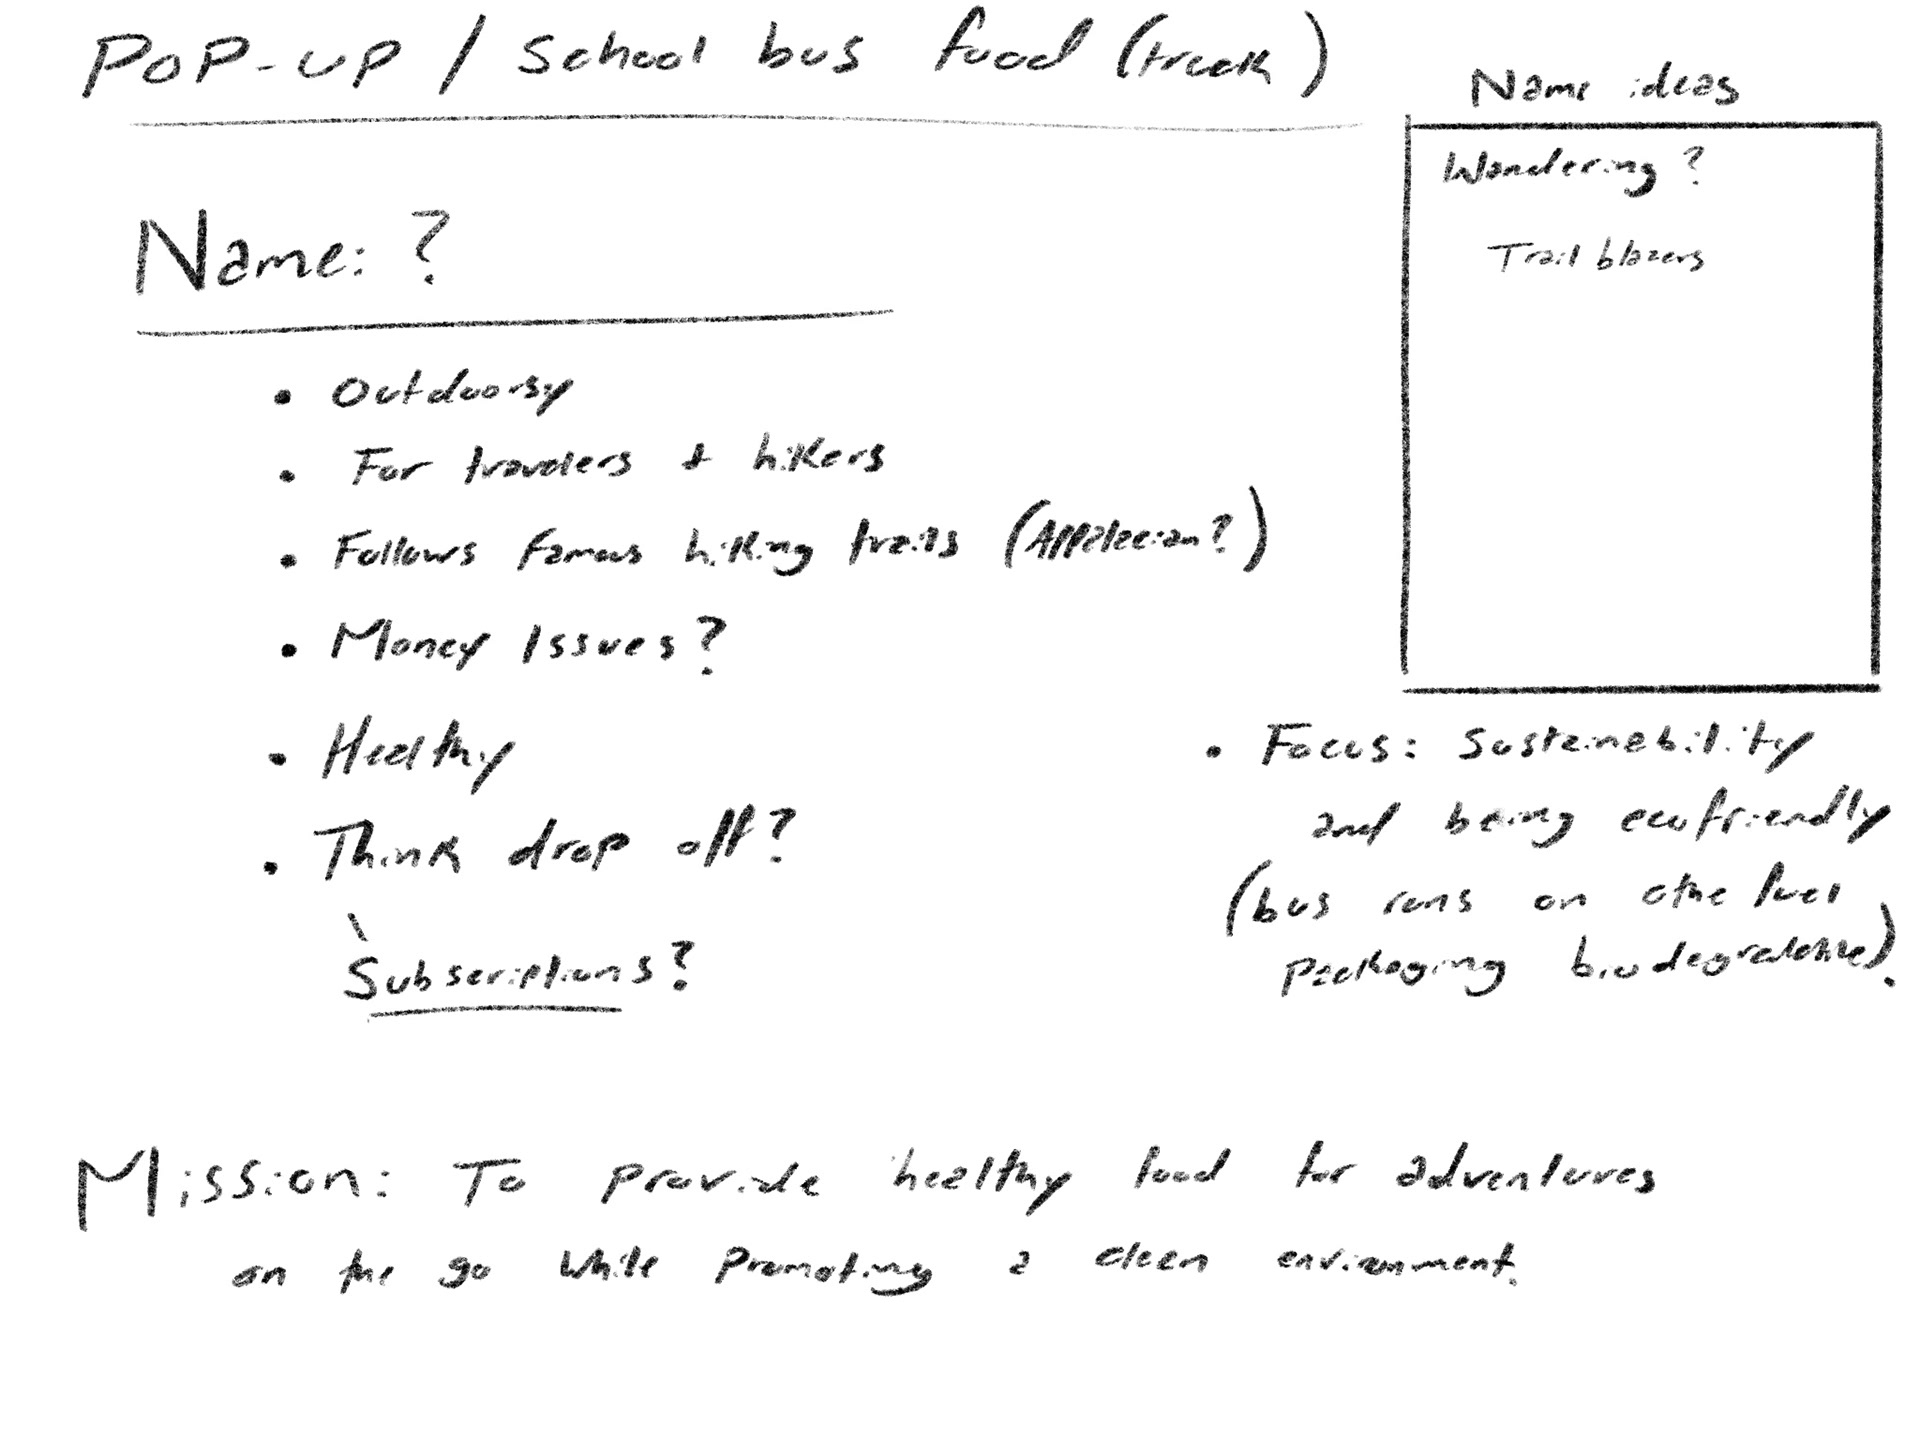 PoP-up / School bus food (truck)
Name ideas
Wandering ?
Trail blazers
Name: ?
• Outdoorsy
• For travelers + hikers
• Follows famous hiking trails (Appalacian?)
• Money Issues?
• Healthy
• Think drop off?
\
Subscriptions?
• Focus: Sustainability
and being ecofriendly
(bus runs on othe fuel
Packaging biodegradable).
Mission: To provide healthy food for adventures
on the go while Promoting a clean environment.